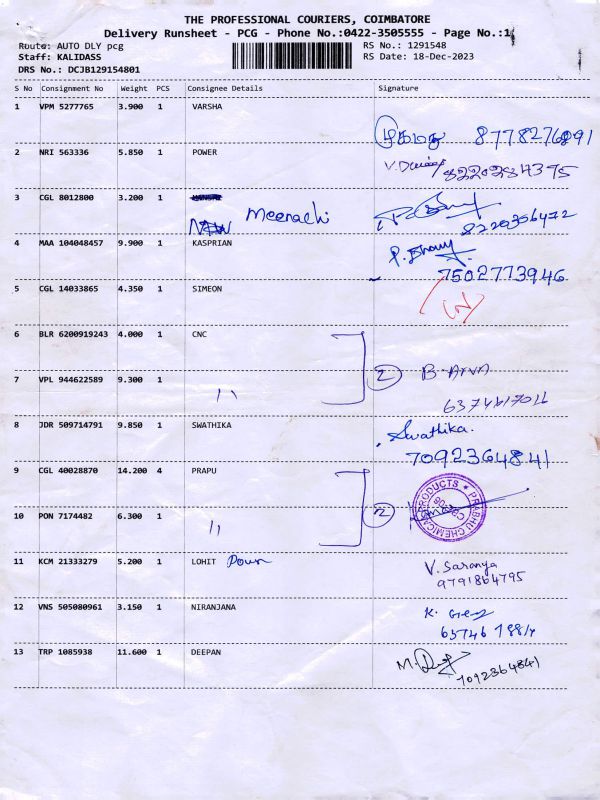 THE PROFESSIONAL COURIERS, COIMBATORE
Delivery Runsheet - PCG - Phone No.:0422-3505555 - Page No.:1
Route: AUTO DLY pcg RS No.: 1291548
Staff: KALIDASS RS Date: 18-Dec-2023
DRS No.: DCJB129154801
S No Consignment No Weight PCS Consignee Details Signature
1 VPM 5277765 3.900 1 VARSHA
8778276891
2 NRI 563336 5.850 1 POWER
8220284375
3 CGL 8012800 3.200 1
Meenachi
8220356472
4 MAA 104048457 9.900 1 KASPRIAN
7502773946
5 CGL 14033865 4.350 1 SIMEON
6 BLR 6200919243 4.000 1 CNC
2
7 VPL 944622589 9.300 1 11
8 JDR 509714791 9.850 1 SWATHIKA Swathika.
7092364841
9 CGL 40028870 14.200 4 PRAPU
PRABHU CHEMICAL PRODUCTS
2
10 PON 7174482 6.300 1 11
11 KCM 21333279 5.200 1 LOHIT V. Saranya
9791864795
12 VNS 505080961 3.150 1 NIRANJANA
13 TRP 1085938 11.600 1 DEEPAN
7092364841